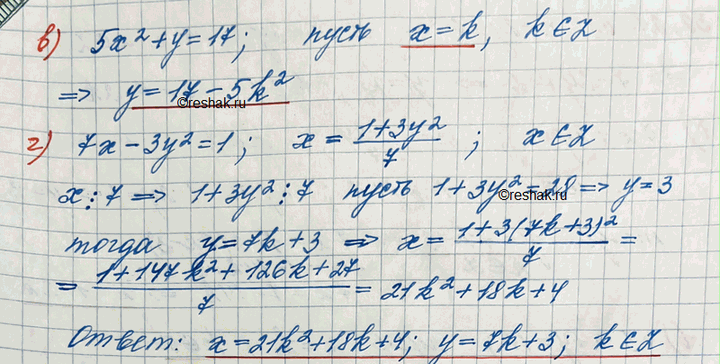 в) 5x² + y = 17; пусть x = k, k ∈ Z
=> y = 17 - 5k²
©reshak.ru
г) 7x - 3y² = 1; x = (1+3y²)/7; x ∈ Z
x ⋮ 7 => 1+3y² ⋮ 7 пусть 1+3y² = 28 => y = 3
©reshak.ru
тогда y = 7k+3 => x = (1+3(7k+3)²)/7 =
= (1+147k²+126k+27)/7 = 21k²+18k+4
Ответ: x = 21k²+18k+4; y = 7k+3; k ∈ Z